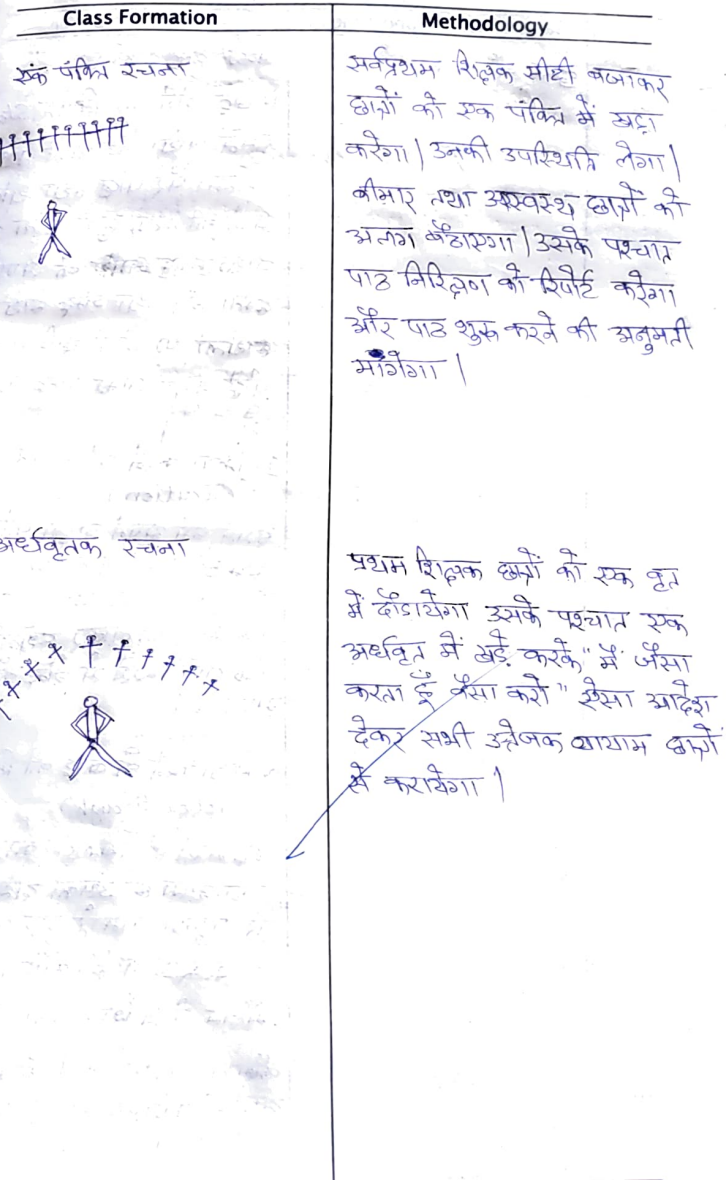 Class Formation
Methodology
एक पंक्ति रचना
सर्वप्रथम शिक्षक सीटी बजाकर
छात्रों को एक पंक्ति में खड़ा
करेगा। उनकी उपस्थिति लेगा।
बीमार तथा अस्वस्थ छात्रों को
अलग बैठाएगा। उसके पश्चात
पाठ निरिक्षण को रिपोर्ट करेगा
और पाठ शुरू करने की अनुमती
मांगेगा।
अर्धवृतक रचना
प्रथम शिक्षक छात्रों को एक वृत
में दौडायेगा उसके पश्चात एक
अर्धवृत में खड़े करके "मैं जैसा
करता हूँ वैसा करो" ऐसा आदेश
देकर सभी उत्तेजक वायाम छात्रों
से करायेगा।